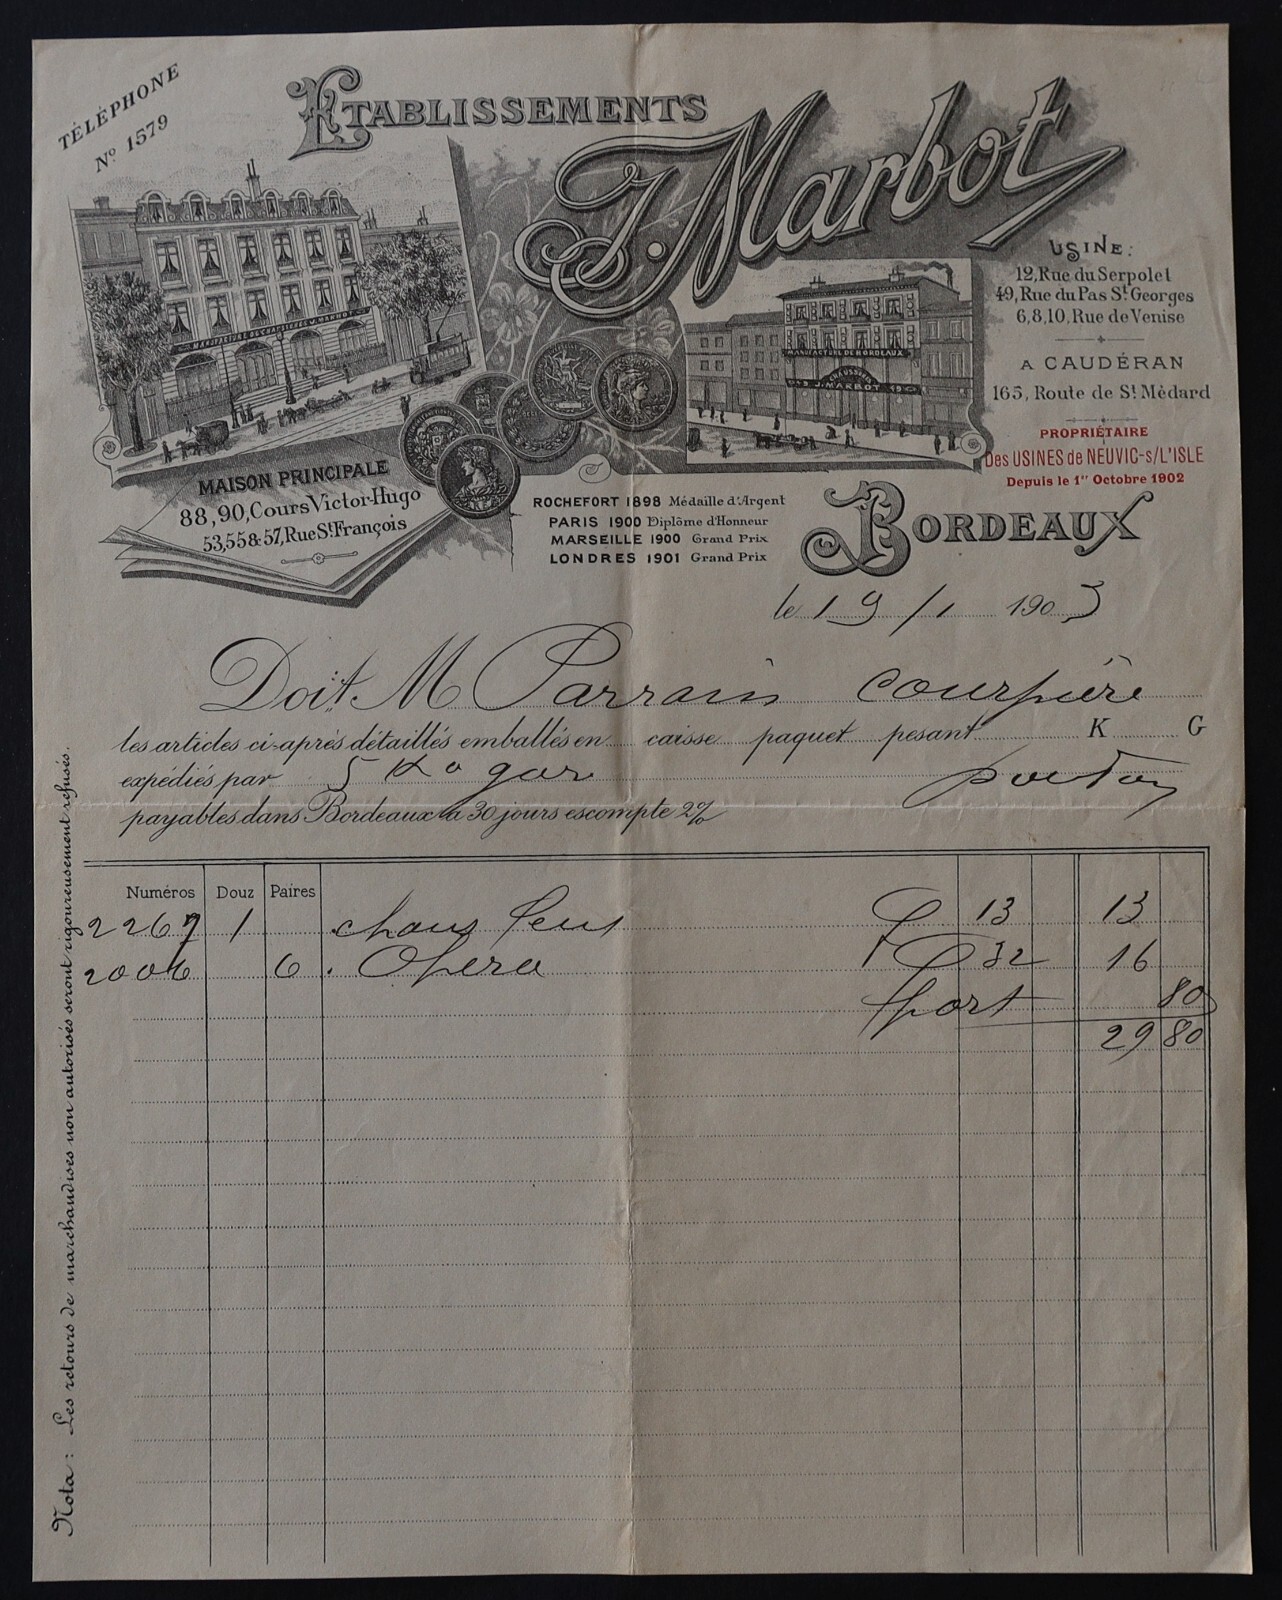 TÉLÉPHONE
No 1579
ETABLISSEMENTS
J. Marbot
MANUFACTURE DE CHAUSSURES J. MARBOT
MANUFACTURE DE BORDEAUX
CHAUSSURES
J. MARBOT
USINE:
12, Rue du Serpolet
49, Rue du Pas St Georges
6,8,10, Rue de Venise
A CAUDÉRAN
165, Route de St Médard
PROPRIÉTAIRE
Des USINES de NEUVIC-s/L'ISLE
Depuis le 1er Octobre 1902
MAISON PRINCIPALE
88,90, Cours Victor-Hugo
53,55 & 57, Rue St François
ROCHEFORT 1898 Médaille d'Argent
PARIS 1900 Diplôme d'Honneur
MARSEILLE 1900 Grand Prix
LONDRES 1901 Grand Prix
BORDEAUX
le 19/1 1903
Doit M Parrain Courpière
les articles ci-après détaillés emballés en caisse paquet pesant K G
expédiés par 5 Ko gare
payables dans Bordeaux à 30 jours escompte 2%
Numéros Douz Paires
2267 1 chaus 13 13
2006 6 Opera 32 16
port 80
29 80
Nota : Les retours de marchandises non autorisés seront rigoureusement refusés.